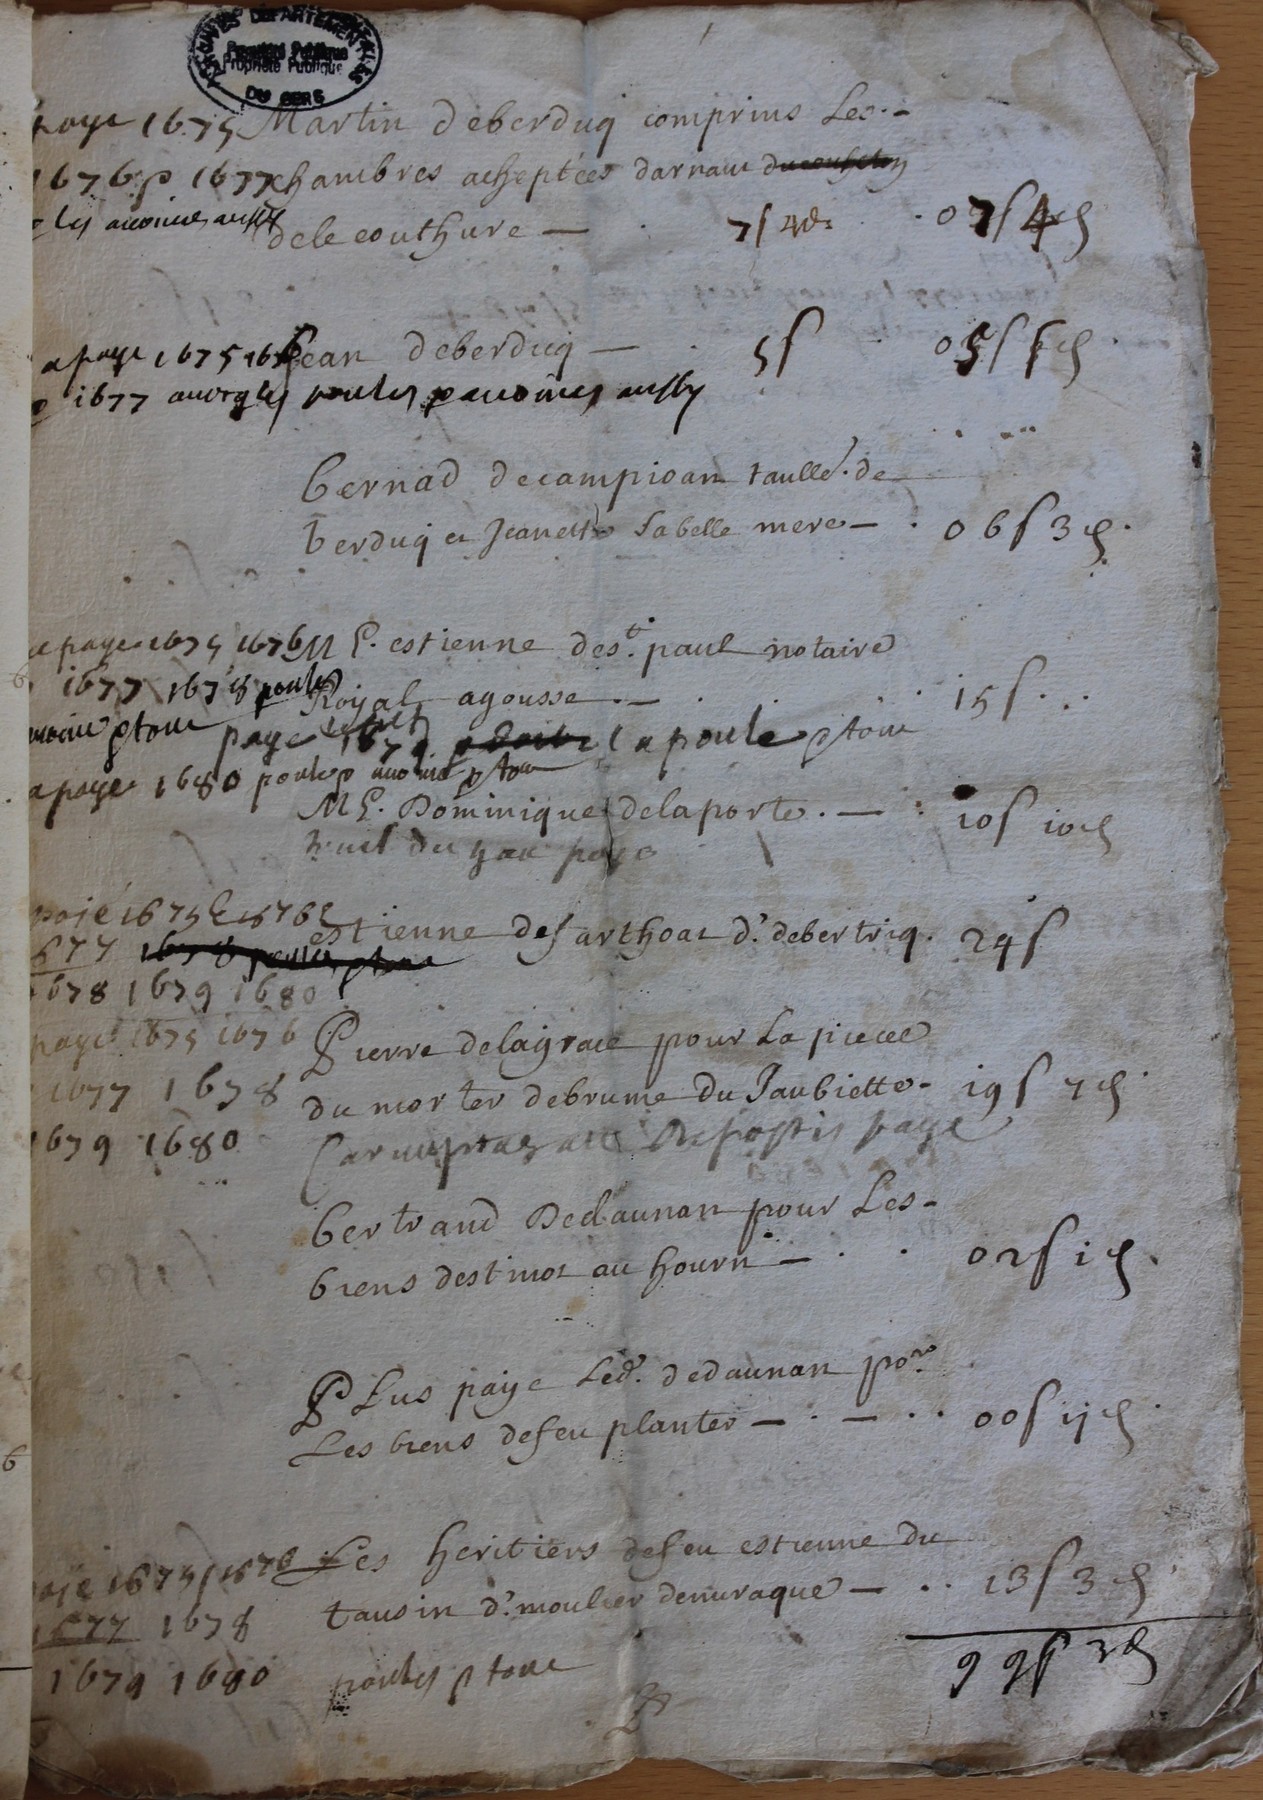 ARCHIVES DEPARTEMENTALES
Propriété Publique
DU GERS
paye 1675 Martin deberduq comprins Les
1676 p 1677 chambres acheptées darnaut
les aussy dele couthure — 7s 4d 07s 4d
a paye 1675 1676 Jean deberduq — 5s 05s
1677 poules aussy
bernad decampioan taulle. de
berduq et Jeanette sa belle mere — 06s 3d
a paye 1675 1676 Me. estienne de st. paul notaire
1677 1678 poules Royal agousse — 15s
ptout paye la poule ptout
a paye 1680 poules ptout
Me. Dominique delaporte. — 10s 10d
paye
paié 1675 & 1676 & estienne desarthoat d'. debertriq. 24s
1677
1678 1679 1680
paye 1675 1676 Pierre delagrace pour La piece
1677 1678 du morter debrume du Jaubiette 19s 7d
1679 1680 paye
bertrand Dedaunan pour Les
biens destinot au hourn — 02s 1d
PLus paye Led. dedaunan por.
Les biens defeu planter — 00s 11d
paié 1675 1676 Les heritiers defeu estienne du
1677 1678 tausin d'. moulier denuraque — 13s 3d
1679 1680 poules ptout 99s 3d